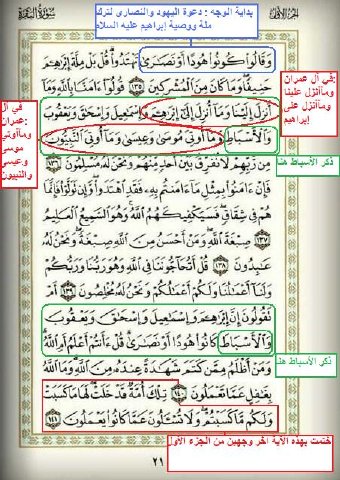 الجزء الأول
سورة البقرة
بداية الوجه : دعوة اليهود والنصارى لترك
ملة ووصية إبراهيم عليه السلام
وَقَالُوا۟ كُونُوا۟ هُودًا أَوْ نَصَـٰرَىٰ تَهْتَدُوا۟ ۗ قُلْ بَلْ مِلَّةَ إِبْرَٰهِـۧمَ
حَنِيفًا ۖ وَمَا كَانَ مِنَ ٱلْمُشْرِكِينَ ١٣٥ قُولُوٓا۟ ءَامَنَّا بِٱللَّهِ وَمَآ
أُنزِلَ إِلَيْنَا وَمَآ أُنزِلَ إِلَىٰٓ إِبْرَٰهِـۧمَ وَإِسْمَـٰعِيلَ وَإِسْحَـٰقَ وَيَعْقُوبَ
وَٱلْأَسْبَاطِ وَمَآ أُوتِىَ مُوسَىٰ وَعِيسَىٰ وَمَآ أُوتِىَ ٱلنَّبِيُّونَ
مِن رَّبِّهِمْ لَا نُفَرِّقُ بَيْنَ أَحَدٍ مِّنْهُمْ وَنَحْنُ لَهُۥ مُسْلِمُونَ ١٣٦
فَإِنْ ءَامَنُوا۟ بِمِثْلِ مَآ ءَامَنتُم بِهِۦ فَقَدِ ٱهْتَدَوا۟ ۖ وَّإِن تَوَلَّوْا۟ فَإِنَّمَا
هُمْ فِى شِقَاقٍ ۖ فَسَيَكْفِيكَهُمُ ٱللَّهُ ۚ وَهُوَ ٱلسَّمِيعُ ٱلْعَلِيمُ
١٣٧ صِبْغَةَ ٱللَّهِ ۖ وَمَنْ أَحْسَنُ مِنَ ٱللَّهِ صِبْغَةً ۖ وَنَحْنُ لَهُۥ
عَـٰبِدُونَ ١٣٨ قُلْ أَتُحَآجُّونَنَا فِى ٱللَّهِ وَهُوَ رَبُّنَا وَرَبُّكُمْ
وَلَنَآ أَعْمَـٰلُنَا وَلَكُمْ أَعْمَـٰلُكُمْ وَنَحْنُ لَهُۥ مُخْلِصُونَ ١٣٩ أَمْ
تَقُولُونَ إِنَّ إِبْرَٰهِـۧمَ وَإِسْمَـٰعِيلَ وَإِسْحَـٰقَ وَيَعْقُوبَ
وَٱلْأَسْبَاطَ كَانُوا۟ هُودًا أَوْ نَصَـٰرَىٰ ۗ قُلْ ءَأَنتُمْ أَعْلَمُ أَمِ ٱللَّهُ ۗ
وَمَنْ أَظْلَمُ مِمَّن كَتَمَ شَهَـٰدَةً عِندَهُۥ مِنَ ٱللَّهِ ۗ وَمَا ٱللَّهُ
بِغَـٰفِلٍ عَمَّا تَعْمَلُونَ ١٤٠ تِلْكَ أُمَّةٌ قَدْ خَلَتْ ۖ لَهَا مَا كَسَبَتْ
وَلَكُم مَّا كَسَبْتُمْ ۖ وَلَا تُسْـَٔلُونَ عَمَّا كَانُوا۟ يَعْمَلُونَ ١٤١
في آل عمران:
وماأنزل علينا
وماأنزل على
إبراهيم
في آل
عمران:
وماأوتي
موسى
وعيسى
والنبيون
ذكر الأسباط هنا
ذكر الأسباط هنا
ختمت بهذه الآية آخر وجهين من الجزء الأول
٢١